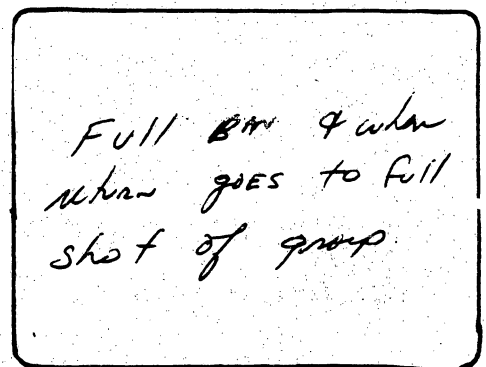 Full BAN & when
return goes to full
shot of group.